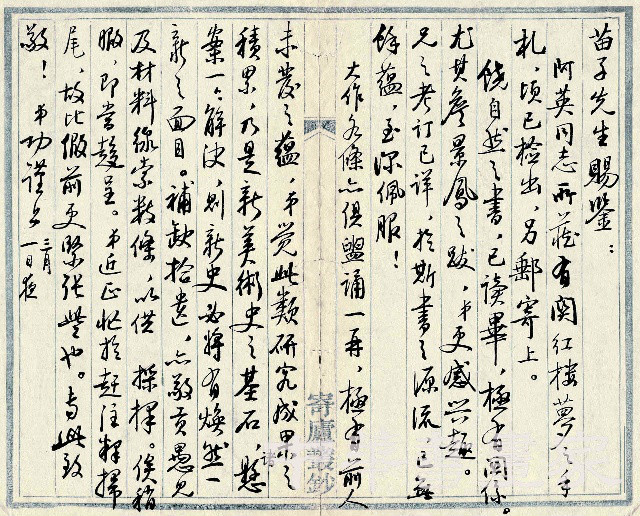 苗子先生赐鉴：
阿英同志所藏有関红楼夢之手
札，顷已检出，另郵寄上。
饶自然之書，已读畢，極有関係。
尤其詹景鳳之跋，弟更感兴趣。
兄之考订已详，於斯書之源流，已無
餘蕴，至深佩服！
大作各條亦俱盥誦一再，極有前人
未發之蕴。弟觉此类研究成果之
積累，乃是新美術史之基石，懸
案一一解决，则新史必将有焕然一
新之面目。補缺拾遗，亦敬贡愚见
及材料線索数條，以供採擇。俟稍
暇，即当趨呈。弟近正忙於赶注釋掃
尾，故比假前更緊张些也。专此致
敬！ 弟功谨上
三月一日夜
寄廬叢鈔